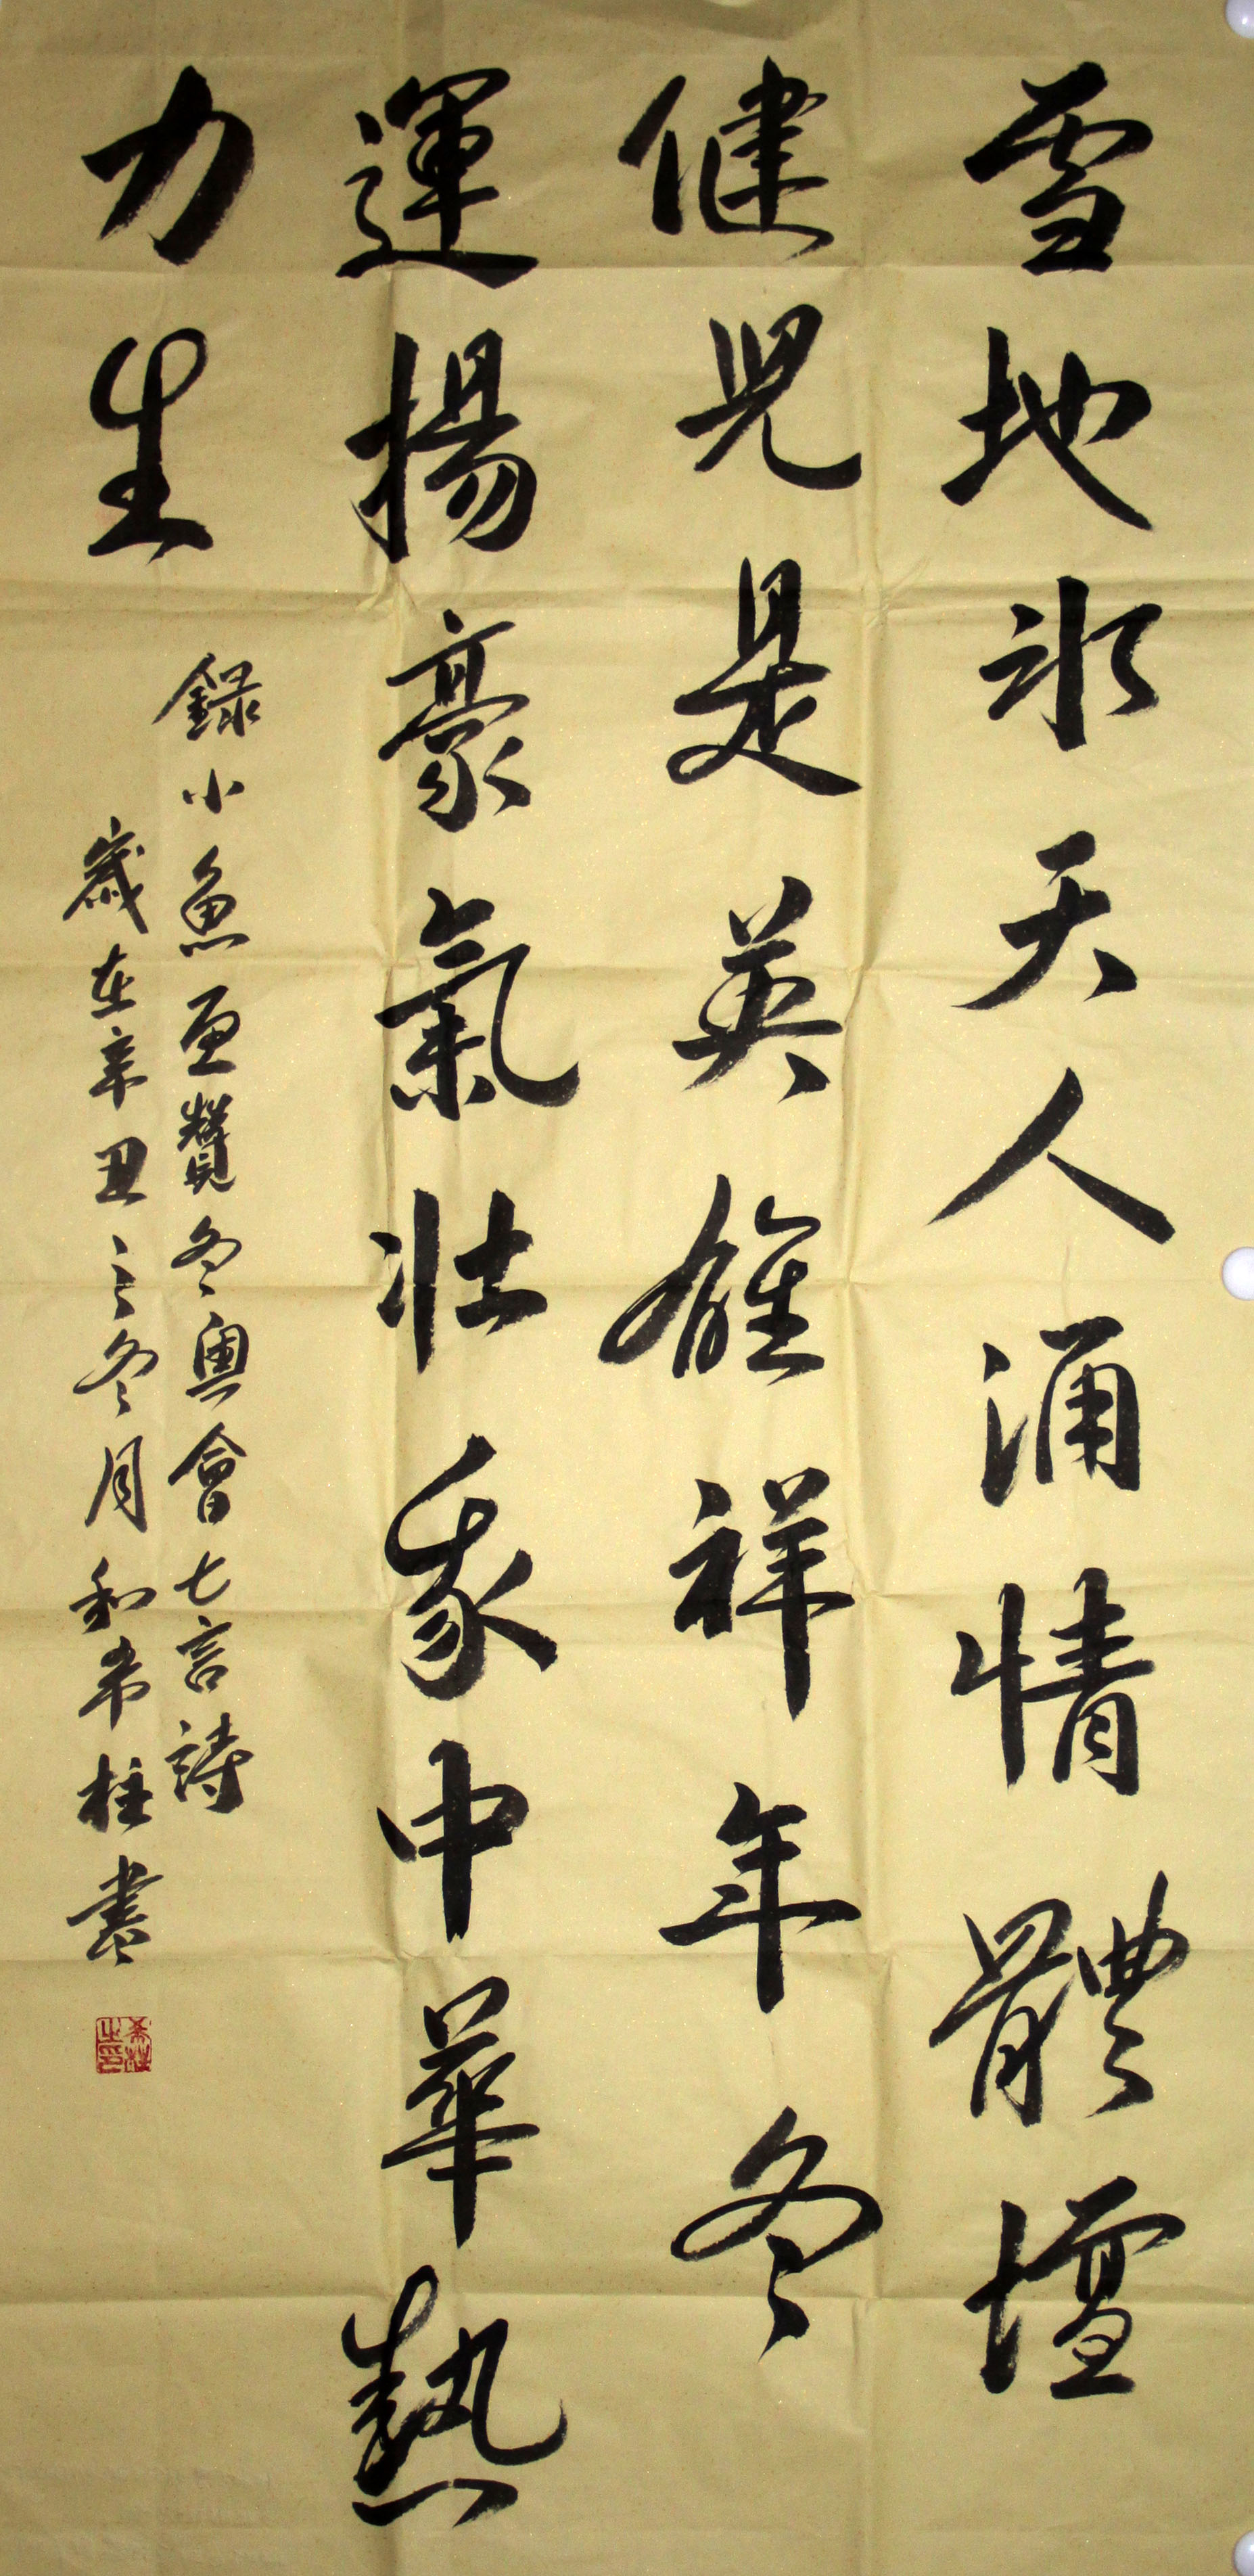 雪地氷天人涌情體壇
健兒是英雄祥年冬
運揚豪氣壯我中華熱
力生
録小魚兒贊冬奧會七言詩
歲在辛丑之冬月和希柱書
希柱之印